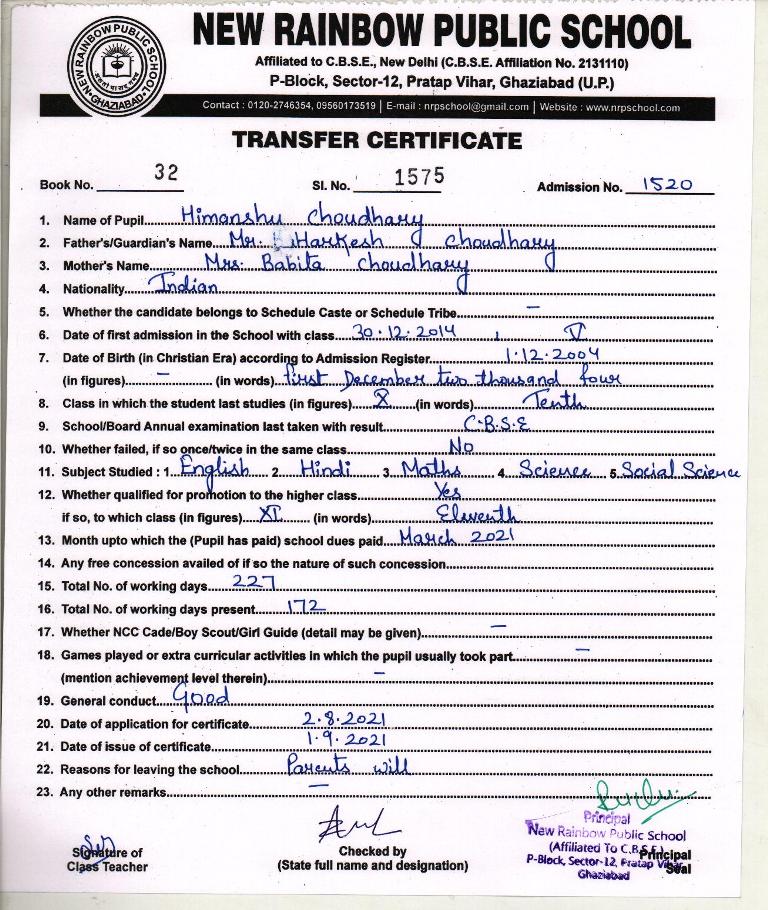 NEW RAINBOW PUBLIC SCHOOL
NEW RAINBOW PUBLIC SCHOOL
GHAZIABAD
Affiliated to C.B.S.E., New Delhi (C.B.S.E. Affiliation No. 2131110)
P-Block, Sector-12, Pratap Vihar, Ghaziabad (U.P.)
Contact : 0120-2746354, 09560173519 | E-mail : nrpschool@gmail.com | Website : www.nrpschool.com
TRANSFER CERTIFICATE
Book No. 32 Sl. No. 1575 Admission No. 1520
1. Name of Pupil Himanshu Choudhary
2. Father's/Guardian's Name Mr. Harkesh Choudhary
3. Mother's Name Mrs. Babita Choudhary
4. Nationality Indian
5. Whether the candidate belongs to Schedule Caste or Schedule Tribe —
6. Date of first admission in the School with class 30.12.2014, V
7. Date of Birth (in Christian Era) according to Admission Register 1.12.2004
(in figures) — (in words) first December two thousand four
8. Class in which the student last studies (in figures) X (in words) Tenth
9. School/Board Annual examination last taken with result C.B.S.E
10. Whether failed, if so once/twice in the same class No
11. Subject Studied : 1. English 2. Hindi 3. Maths 4. Science 5. Social Science
12. Whether qualified for promotion to the higher class Yes
if so, to which class (in figures) XI (in words) Eleventh
13. Month upto which the (Pupil has paid) school dues paid March 2021
14. Any free concession availed of if so the nature of such concession
15. Total No. of working days 227
16. Total No. of working days present 172
17. Whether NCC Cade/Boy Scout/Girl Guide (detail may be given) —
18. Games played or extra curricular activities in which the pupil usually took part —
(mention achievement level therein) —
19. General conduct Good
20. Date of application for certificate 2.8.2021
21. Date of issue of certificate 1.9.2021
22. Reasons for leaving the school Parents will
23. Any other remarks —
Principal
New Rainbow Public School
(Affiliated To C.B.S.E.)
P-Block, Sector-12, Pratap Vihar
Ghaziabad
Signature of
Class Teacher
Checked by
(State full name and designation)
Principal
Seal